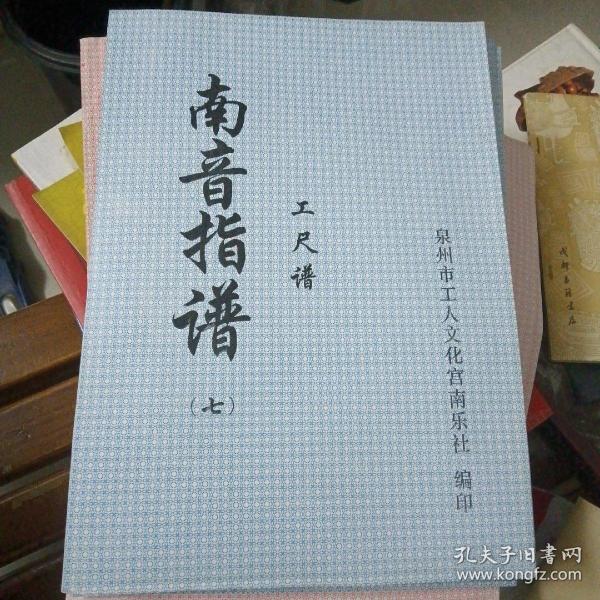 南音指谱
（七）
工尺谱
泉州市工人文化宫南乐社 编印
成都古籍书店
孔夫子旧书网
www.kongfz.com